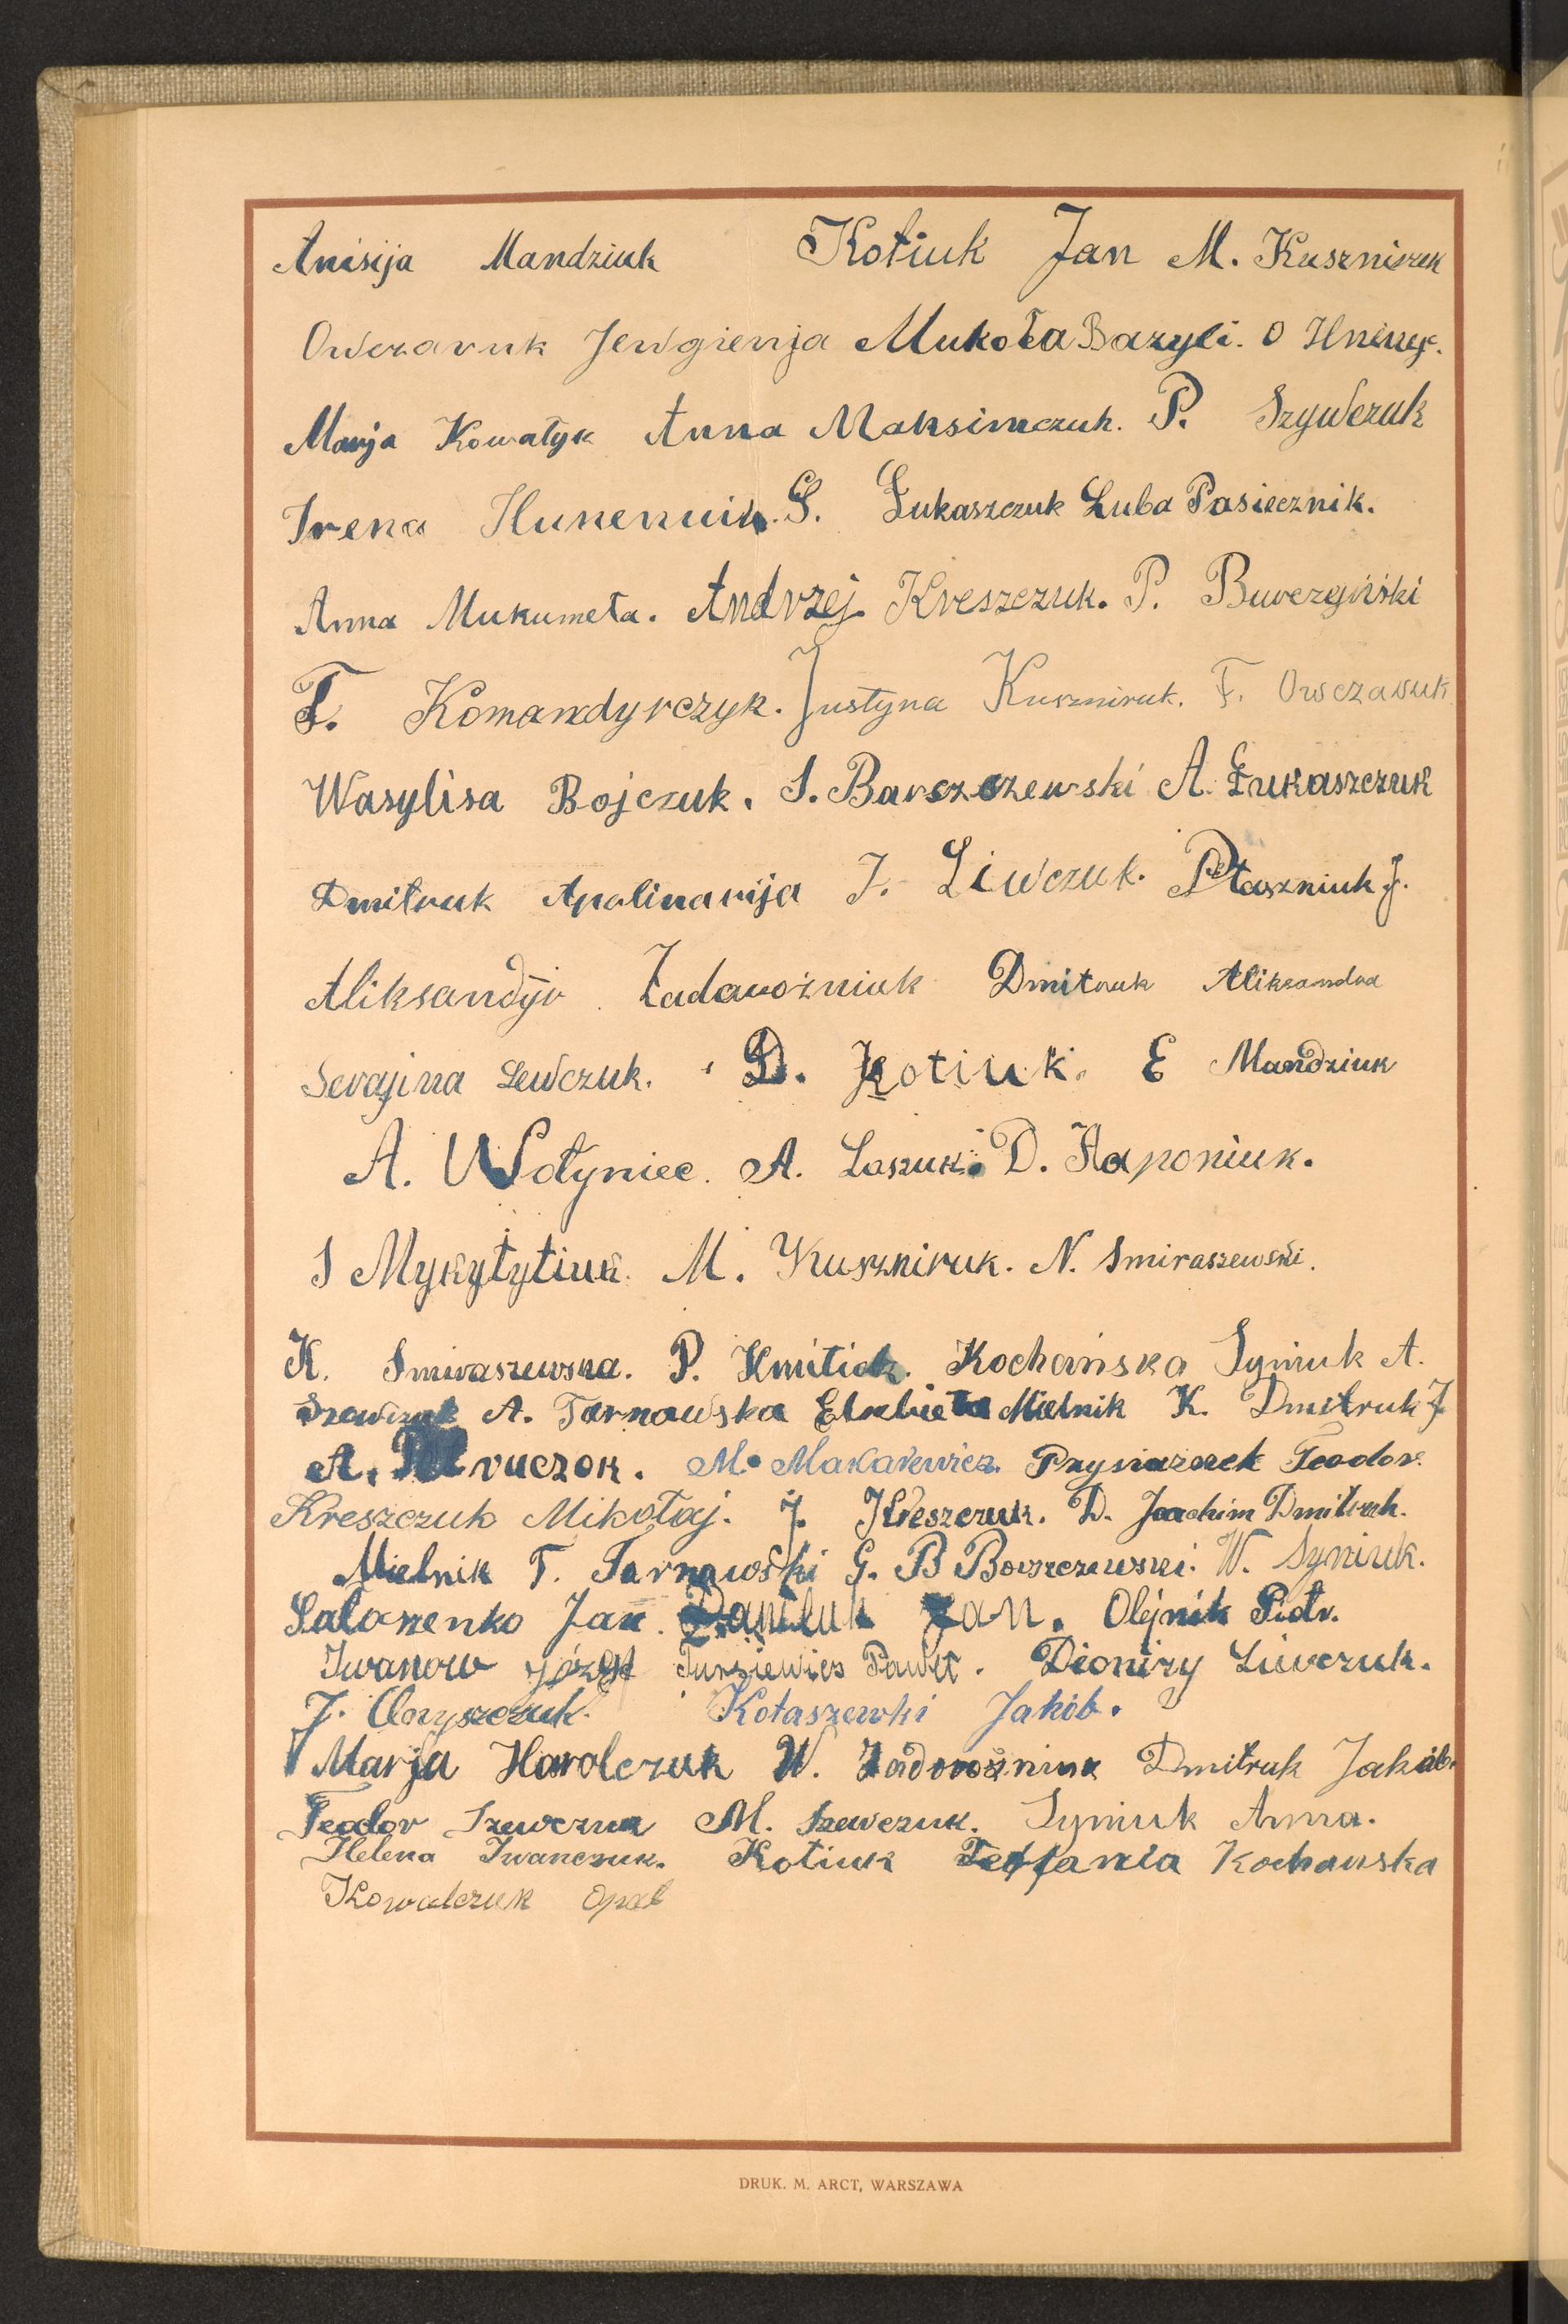 Anisija Mandziuk Kotiuk Jan M. Kuszniruk
Owczaruk Jewgienja Mukoła Bazyli. O
Marja Kowałyk Anna Maksimczuk. P. Szywczuk
Irena S. Łukaszczuk Luba Pasiecznik.
Anna Mukumeta. Andrzej Kreszczuk. P. Burczyński
T. Komandyrczyk. Justyna Kuszniruk. F. Owczaruk
Wasylisa Bojczuk. S. Barszczewski A. Łukaszczuk
Dmitruk Apolinarija J. Liwczuk. Ptaszniuk J.
Aliksandyr Zadarożniuk Dmitruk Aliksandra
Serafina Lewczuk. D. Kotiuk. E Mandziuk
A. Wołyniec. A. Laszuk. D. Haponiuk.
S Mykytytiuk. M. Kuszniruk. N. Smiraszewski.
K. Smiraszewska. P. Kmitiuk. Kochańska Syniuk A.
Szewczuk A. Tarnawska Elżbieta Mielnik K. Dmitruk J
A. M. Makarewicz. Teodor.
Kreszczuk Mikołaj. J. Kreszczuk. D. Joachim Dmitruk.
Mielnik T. Tarnawski G. B Barszczewski. W. Syniuk.
Sałaszenko Jan. Daniluk Jan. Olejnik Piotr.
Iwanow Józef Jursiewicz Paweł. Dionizy Liwczuk.
J. Onyszczuk. Kołaszewki Jakób.
Marja Harolczuk W. Zadorożniuk Dmitruk Jakób.
Teodor Szewczuk M. Szewczuk. Syniuk Anna.
Helena Iwanczuk. Kotiuk Teofania Kochanska
Kowalczuk Opal
DRUK. M. ARCT, WARSZAWA